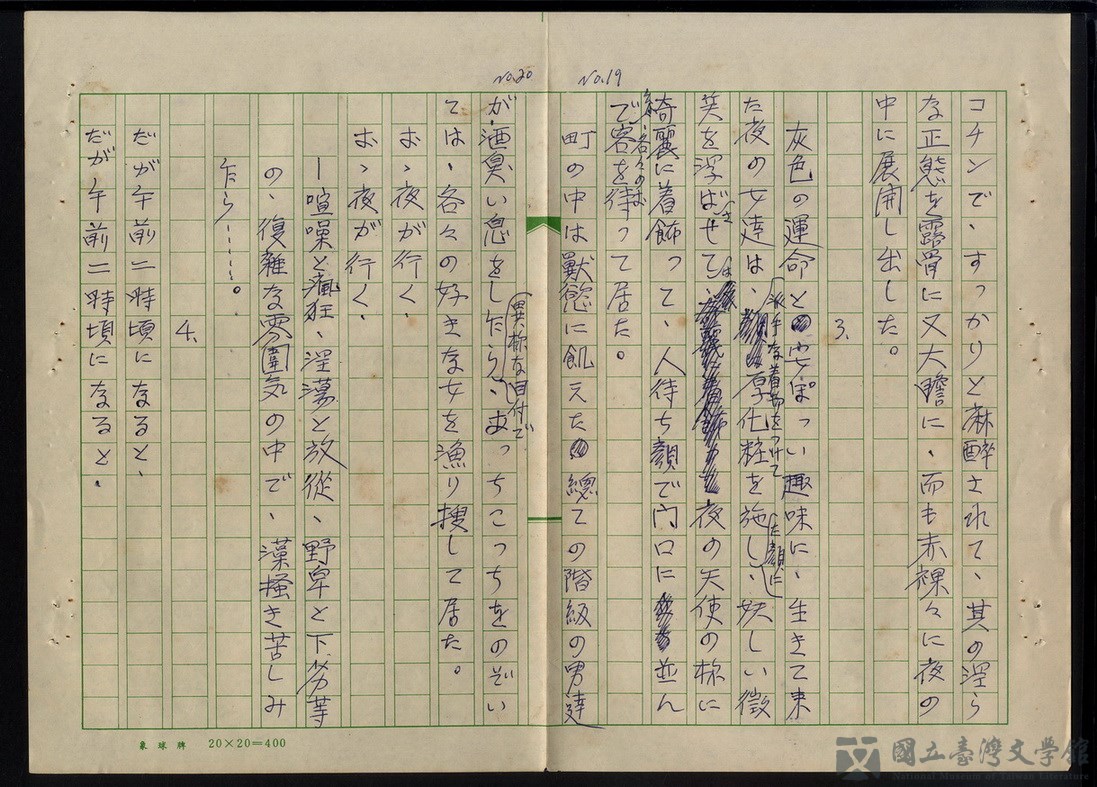 No.19
コチンで、すっかりと麻酔されて、其の淫ら
な正態を露骨に又大膽に、而も赤裸々に夜の
中に展開し出した。
3.
灰色の運命と安ぽっい趣味に、生きて来
た夜の女達は、派手な着物をつけて厚化粧を施した顔に、妖しい微
笑を浮ばせては、夜の天使の様に
綺麗に着飾って、人待ち顔で門口に並ん
で、各々のお客を待って居た。
町の中は獸慾に飢えた總ての階級の男達
No.20
が、酒臭い息をし乍ら、異様な目付であっちこっちをのぞい
ては、各々の好きな女を漁り捜して居た。
おゝ夜が行く、
おゝ夜が行く、
ー喧噪と瘋狂、淫蕩と放從、野卑と下劣等
の、復雜な雰圍気の中で、藻掻き苦しみ
乍ら……。
4.
だが午前二時頃になると、
だが午前二時頃になると、
象球牌 20×20=400
國立臺灣文学館
National Museum of Taiwan Literature